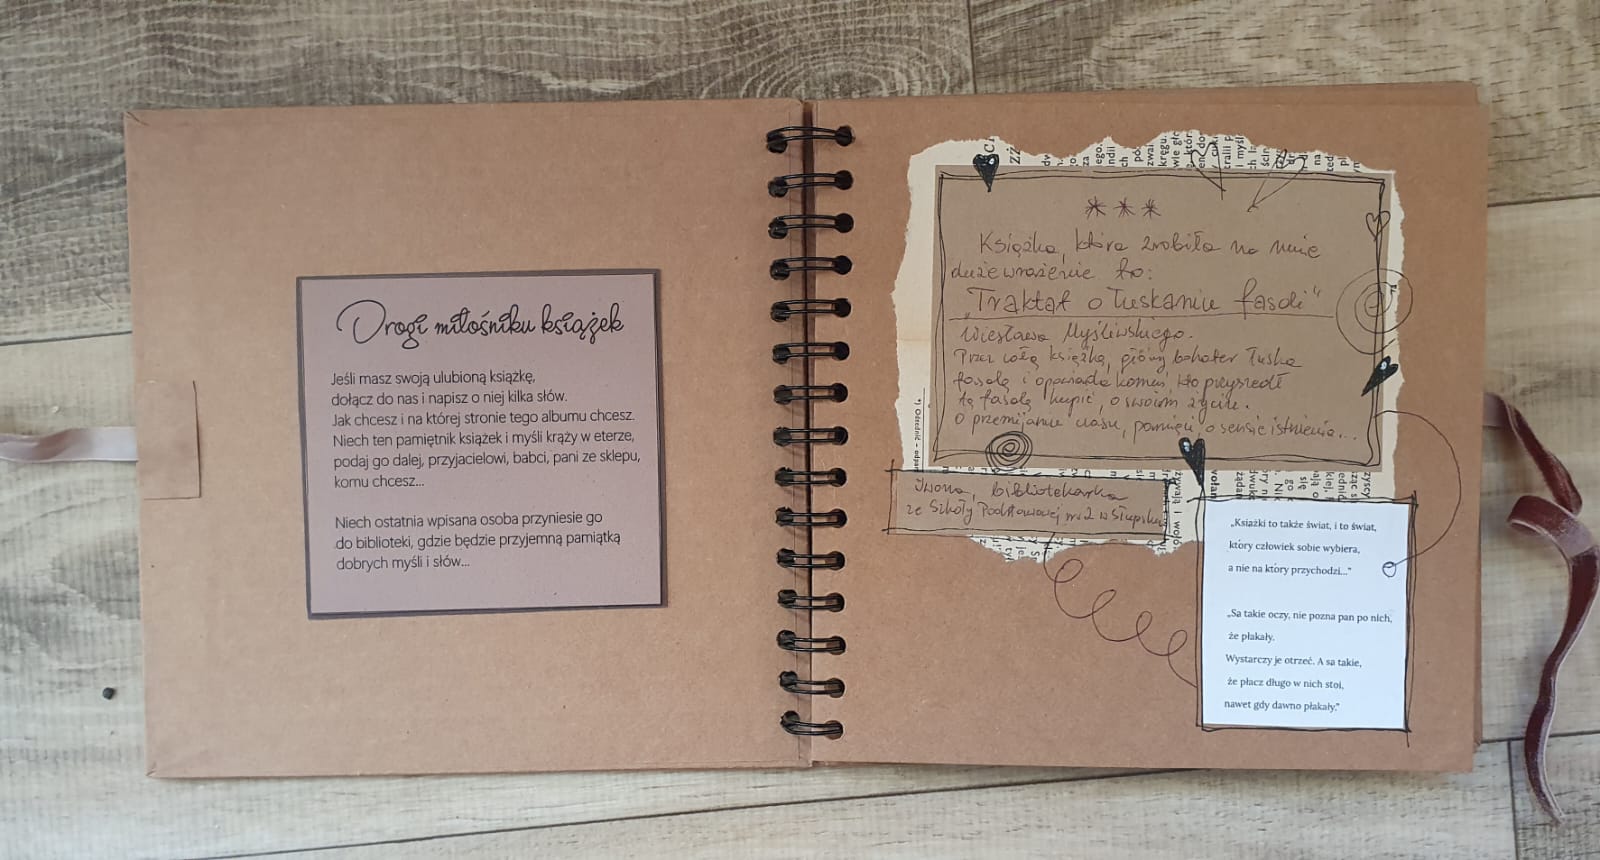 Drogi miłośniku książek
Jeśli masz swoją ulubioną książkę,
dołącz do nas i napisz o niej kilka słów.
Jak chcesz i na której stronie tego albumu chcesz.
Niech ten pamiętnik książek i myśli krąży w eterze,
podaj go dalej, przyjacielowi, babci, pani ze sklepu,
komu chcesz...
Niech ostatnia wpisana osoba przyniesie go
do biblioteki, gdzie będzie przyjemną pamiątką
dobrych myśli i słów...
Książka, która zrobiła na mnie
duże wrażenie to:
„Traktat o łuskaniu fasoli"
Wiesława Myśliwskiego.
Przez całą książkę, główny bohater łuska
fasolę i opowiada komuś, kto przyszedł
tą fasolę kupić, o swoim życiu.
O przemijaniu czasu, pamięci, o sensie istnienia...
Iwona, bibliotekarka
ze Szkoły Podstawowej nr 2 w Słupsku
„Książki to także świat, i to świat,
który człowiek sobie wybiera,
a nie na który przychodzi..."
„Sa takie oczy, nie pozna pan po nich,
że płakały.
Wystarczy je otrzeć. A sa takie,
że płacz długo w nich stoi,
nawet gdy dawno płakały."